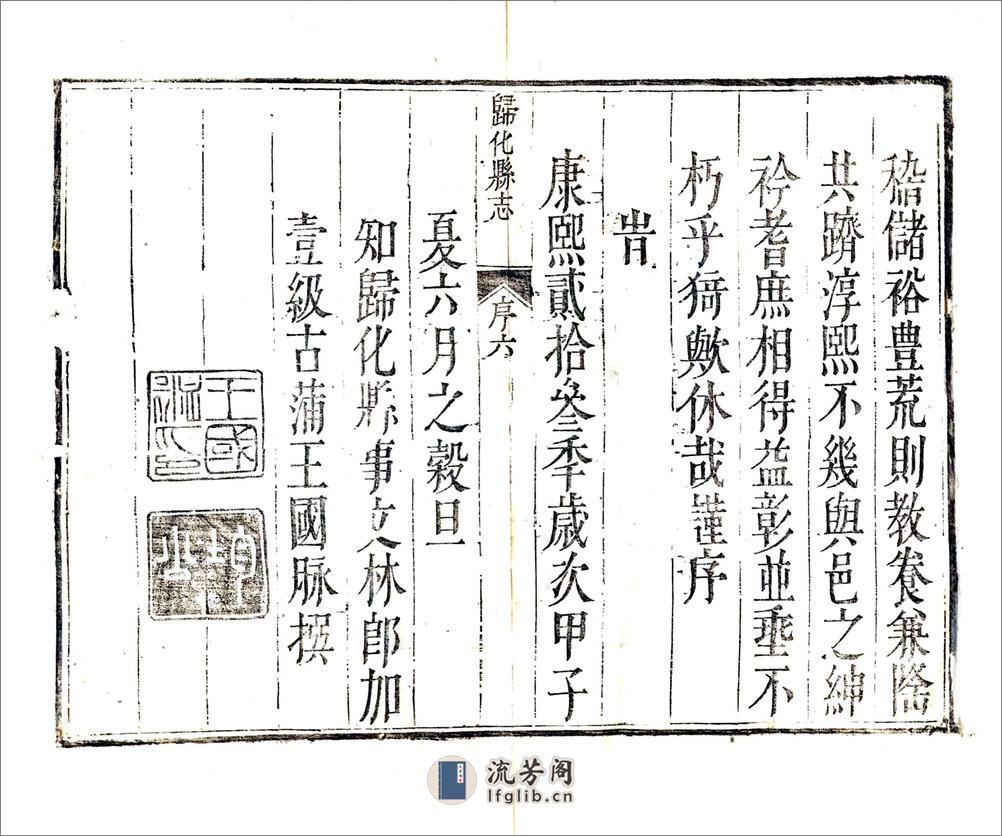 稸儲裕豊荒則教養兼隆
共躋淳熙不幾與邑之紳
衿耆庶相得益彰並垂不
朽乎猗歟休哉謹序
旹
康熙貳拾叄秊歲次甲子
歸化縣志
序六
夏六月之穀旦
知歸化縣事文林郎加
壹級古蒲王國脉撰
王國
脉印
流芳阁
lfglib.cn